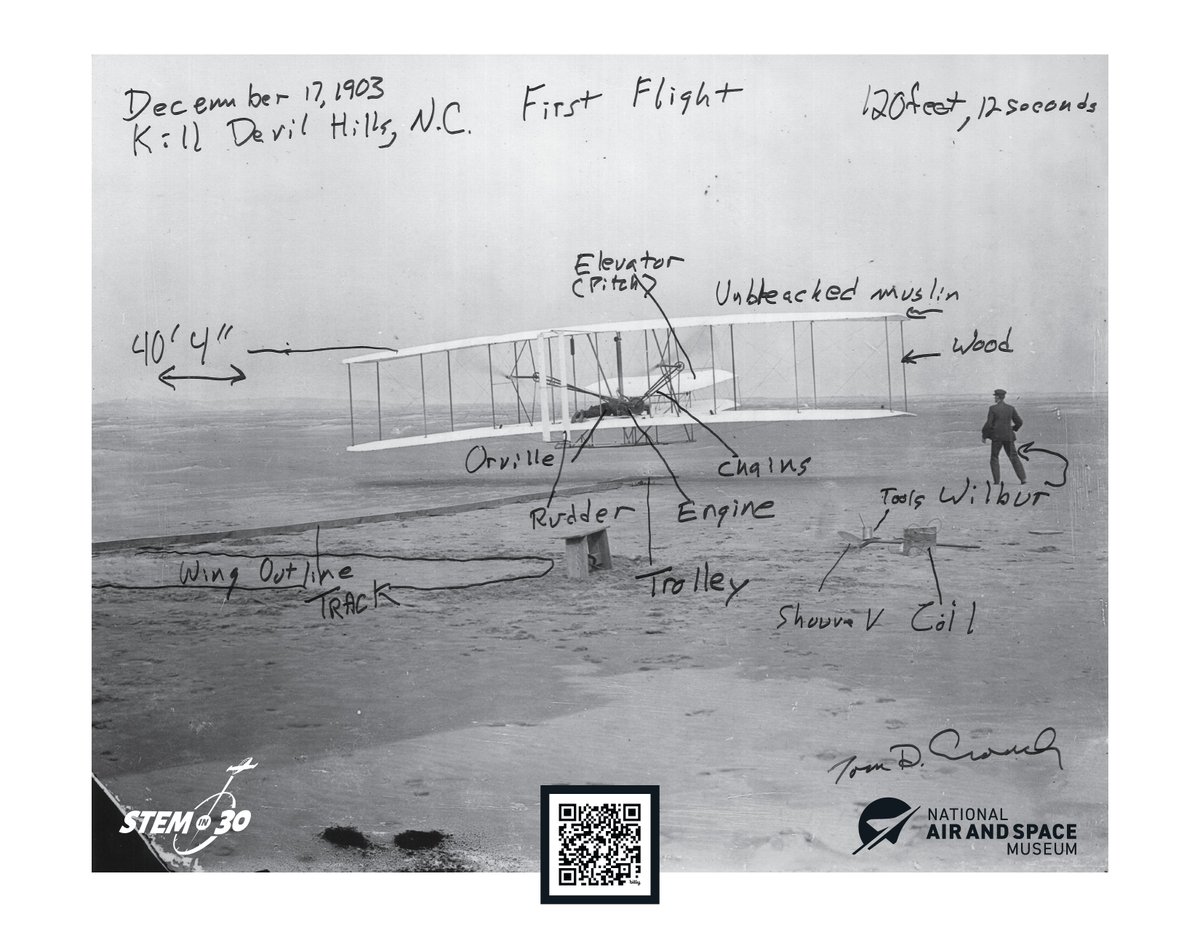 December 17, 1903
First Flight
120 feet, 12 seconds
Kill Devil Hills, N.C.
Elevator
(Pitch)
Unbleacked muslin
40' 4"
Wood
Orville
chains
Tools
Wilbur
Rudder
Engine
Wing Outline
Trolley
TRACK
Shouvel
Coil
Tom D. Crouch
STEM IN 30
NATIONAL
AIR AND SPACE
MUSEUM